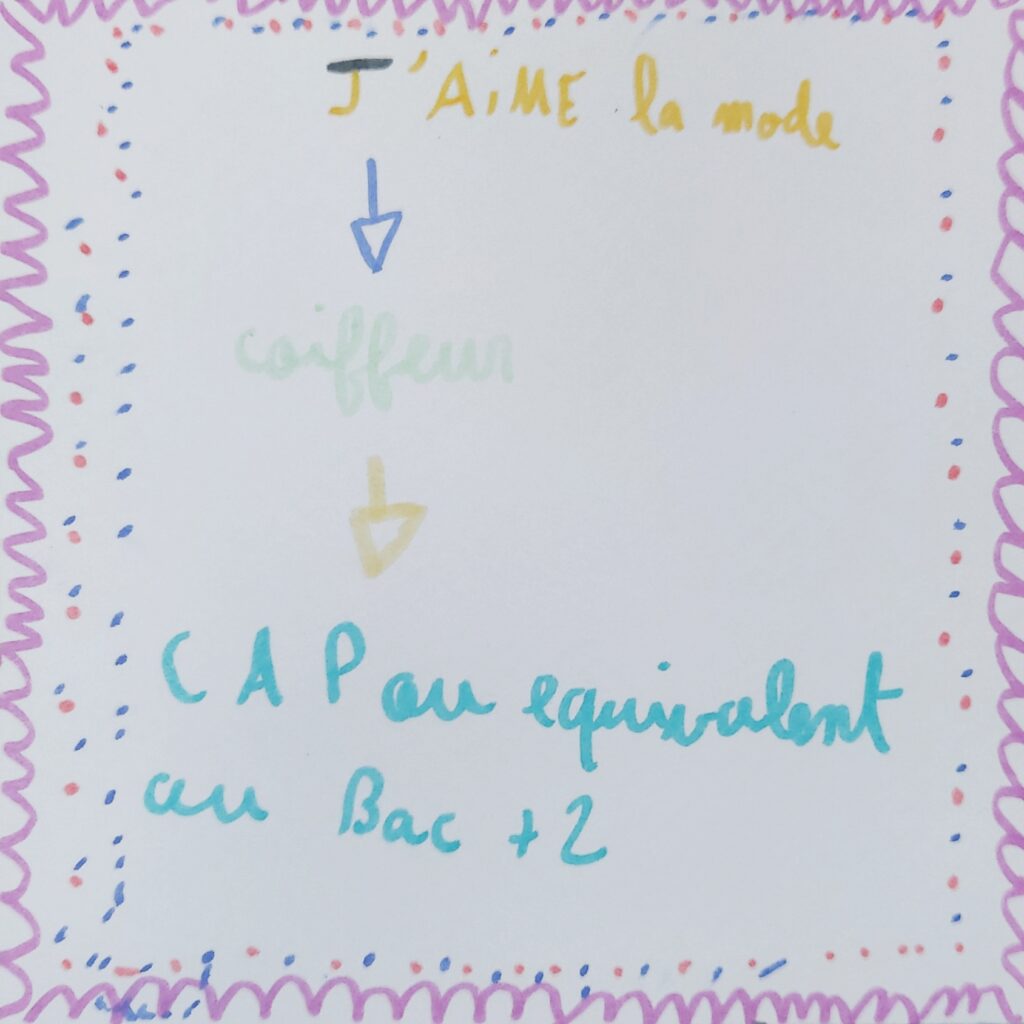 J'AiME la mode
coiffeur
CAP ou equivalent
au Bac +2